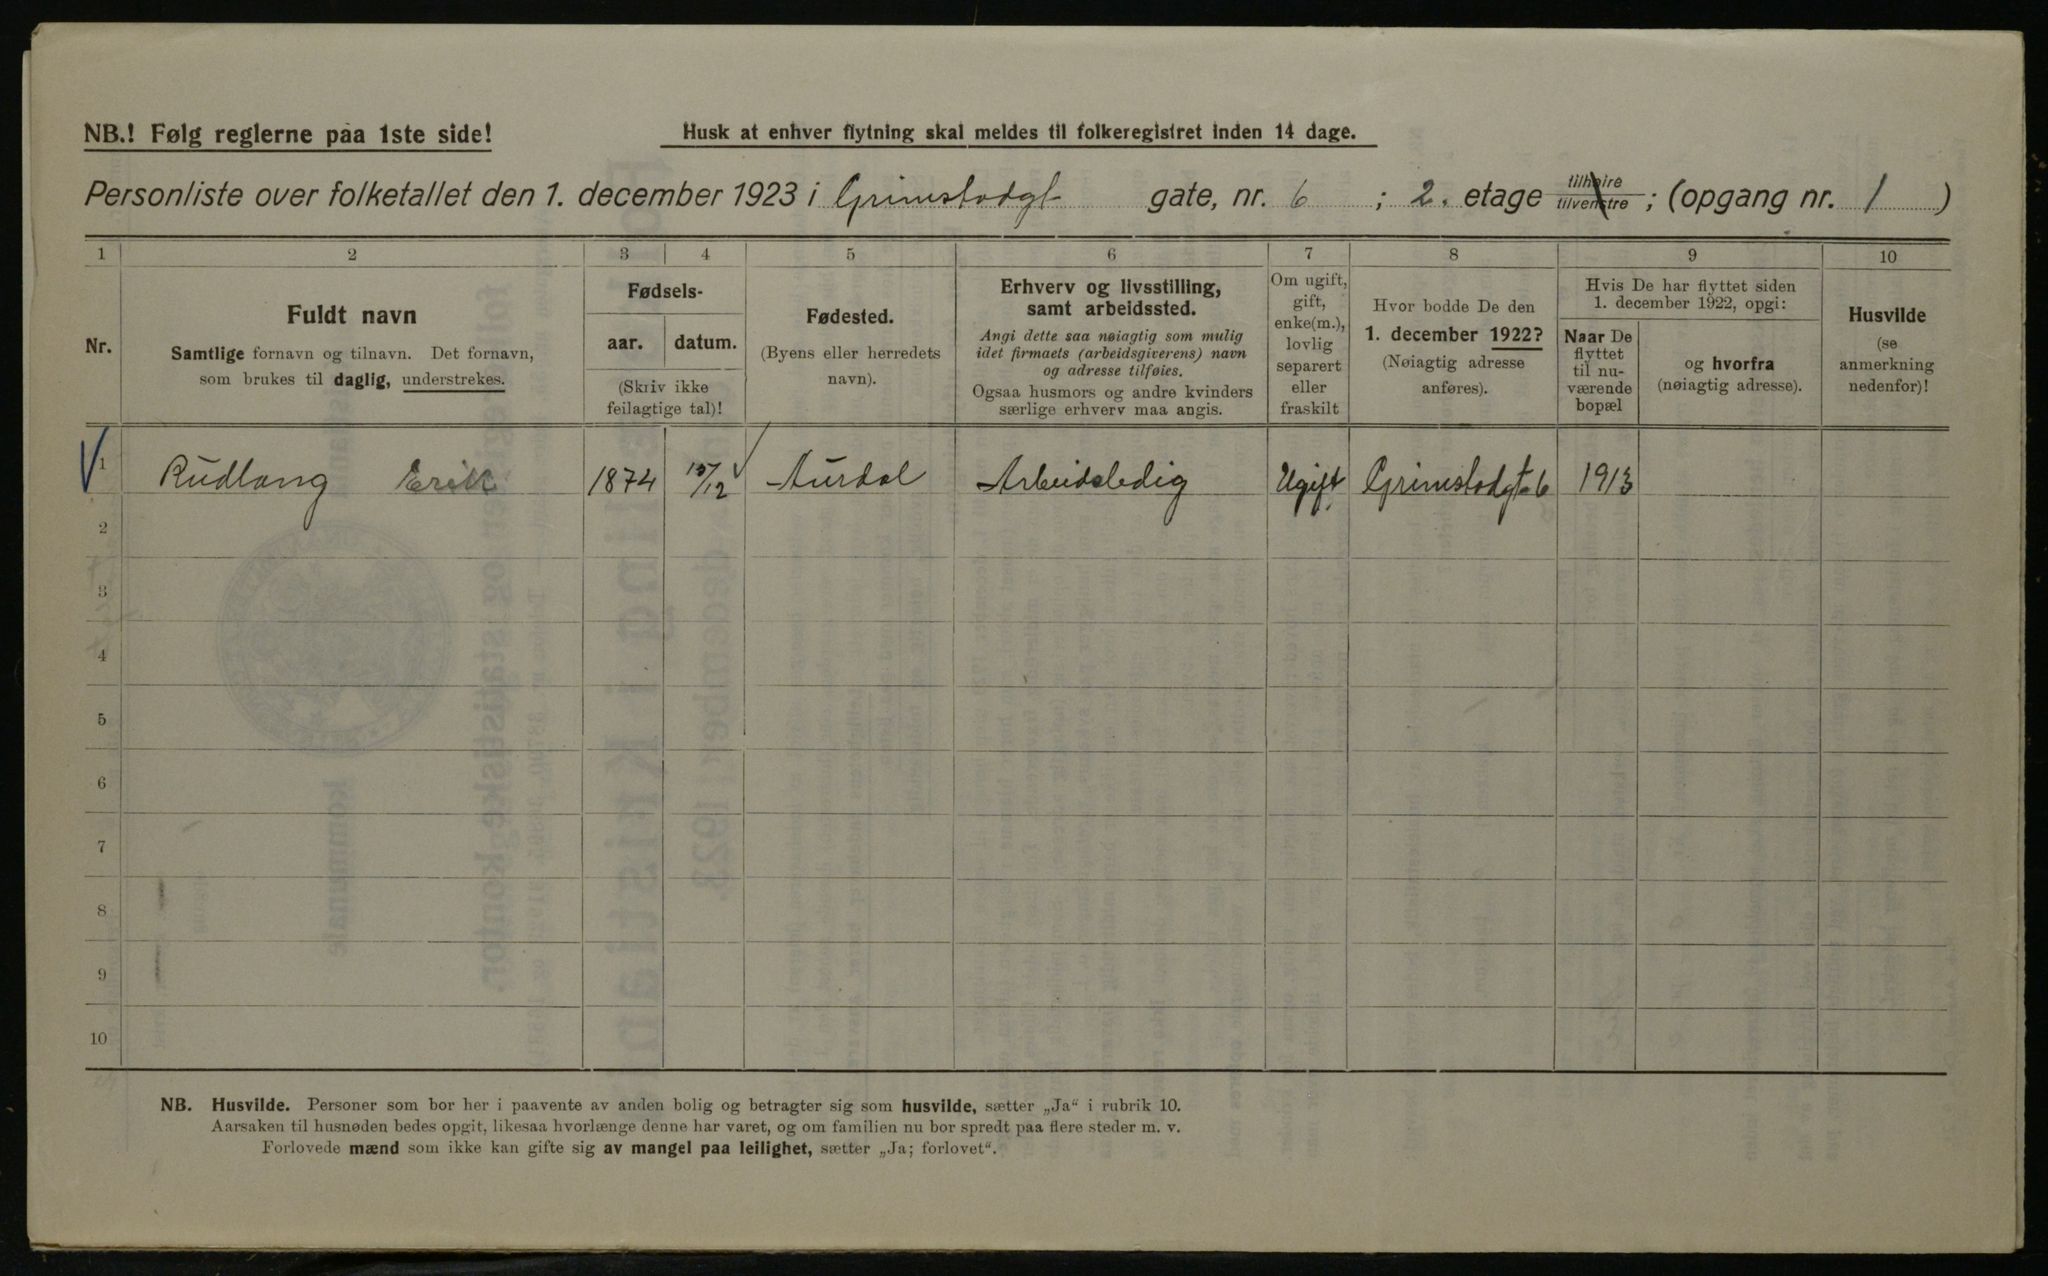 NB.! Følg reglerne paa 1ste side!
Husk at enhver flytning skal meldes til folkeregistret inden 14 dage.
Personliste over folketallet den 1. december 1923 i Grimstadgt gate, nr. 6 ; 2. etage tilhøire tilvenstre ; (opgang nr. 1 )
1 2 3 4 5 6 7 8 9 10
Nr.
Fuldt navn
Samtlige fornavn og tilnavn. Det fornavn,
som brukes til daglig, understrekes.
Fødsels-
aar. datum.
(Skriv ikke
feilagtige tal)!
Fødested.
(Byens eller herredets
navn).
Erhverv og livsstilling,
samt arbeidssted.
Angi dette saa nøiagtig som mulig
idet firmaets (arbeidsgiverens) navn
og adresse tilføies.
Ogsaa husmors og andre kvinders
særlige erhverv maa angis.
Om ugift,
gift,
enke(m.),
lovlig
separert
eller
fraskilt
Hvor bodde De den
1. december 1922?
(Nøiagtig adresse
anføres).
Hvis De har flyttet siden
1. december 1922, opgi:
Naar De
flyttet
til nu-
værende
bopæl
og hvorfra
(nøiagtig adresse).
Husvilde
(se
anmerkning
nedenfor)!
1 Rudlang Erik 1874 15/12 Aurdal Arbeidsledig Ugift Grimstadgt 6 1913
2
3
4
5
6
7
8
9
10
NB. Husvilde. Personer som bor her i paavente av anden bolig og betragter sig som husvilde, sætter „Ja“ i rubrik 10.
Aarsaken til husnøden bedes opgit, likesaa hvorlænge denne har varet, og om familien nu bor spredt paa flere steder m. v.
Forlovede mænd som ikke kan gifte sig av mangel paa leilighet, sætter „Ja; forlovet“.